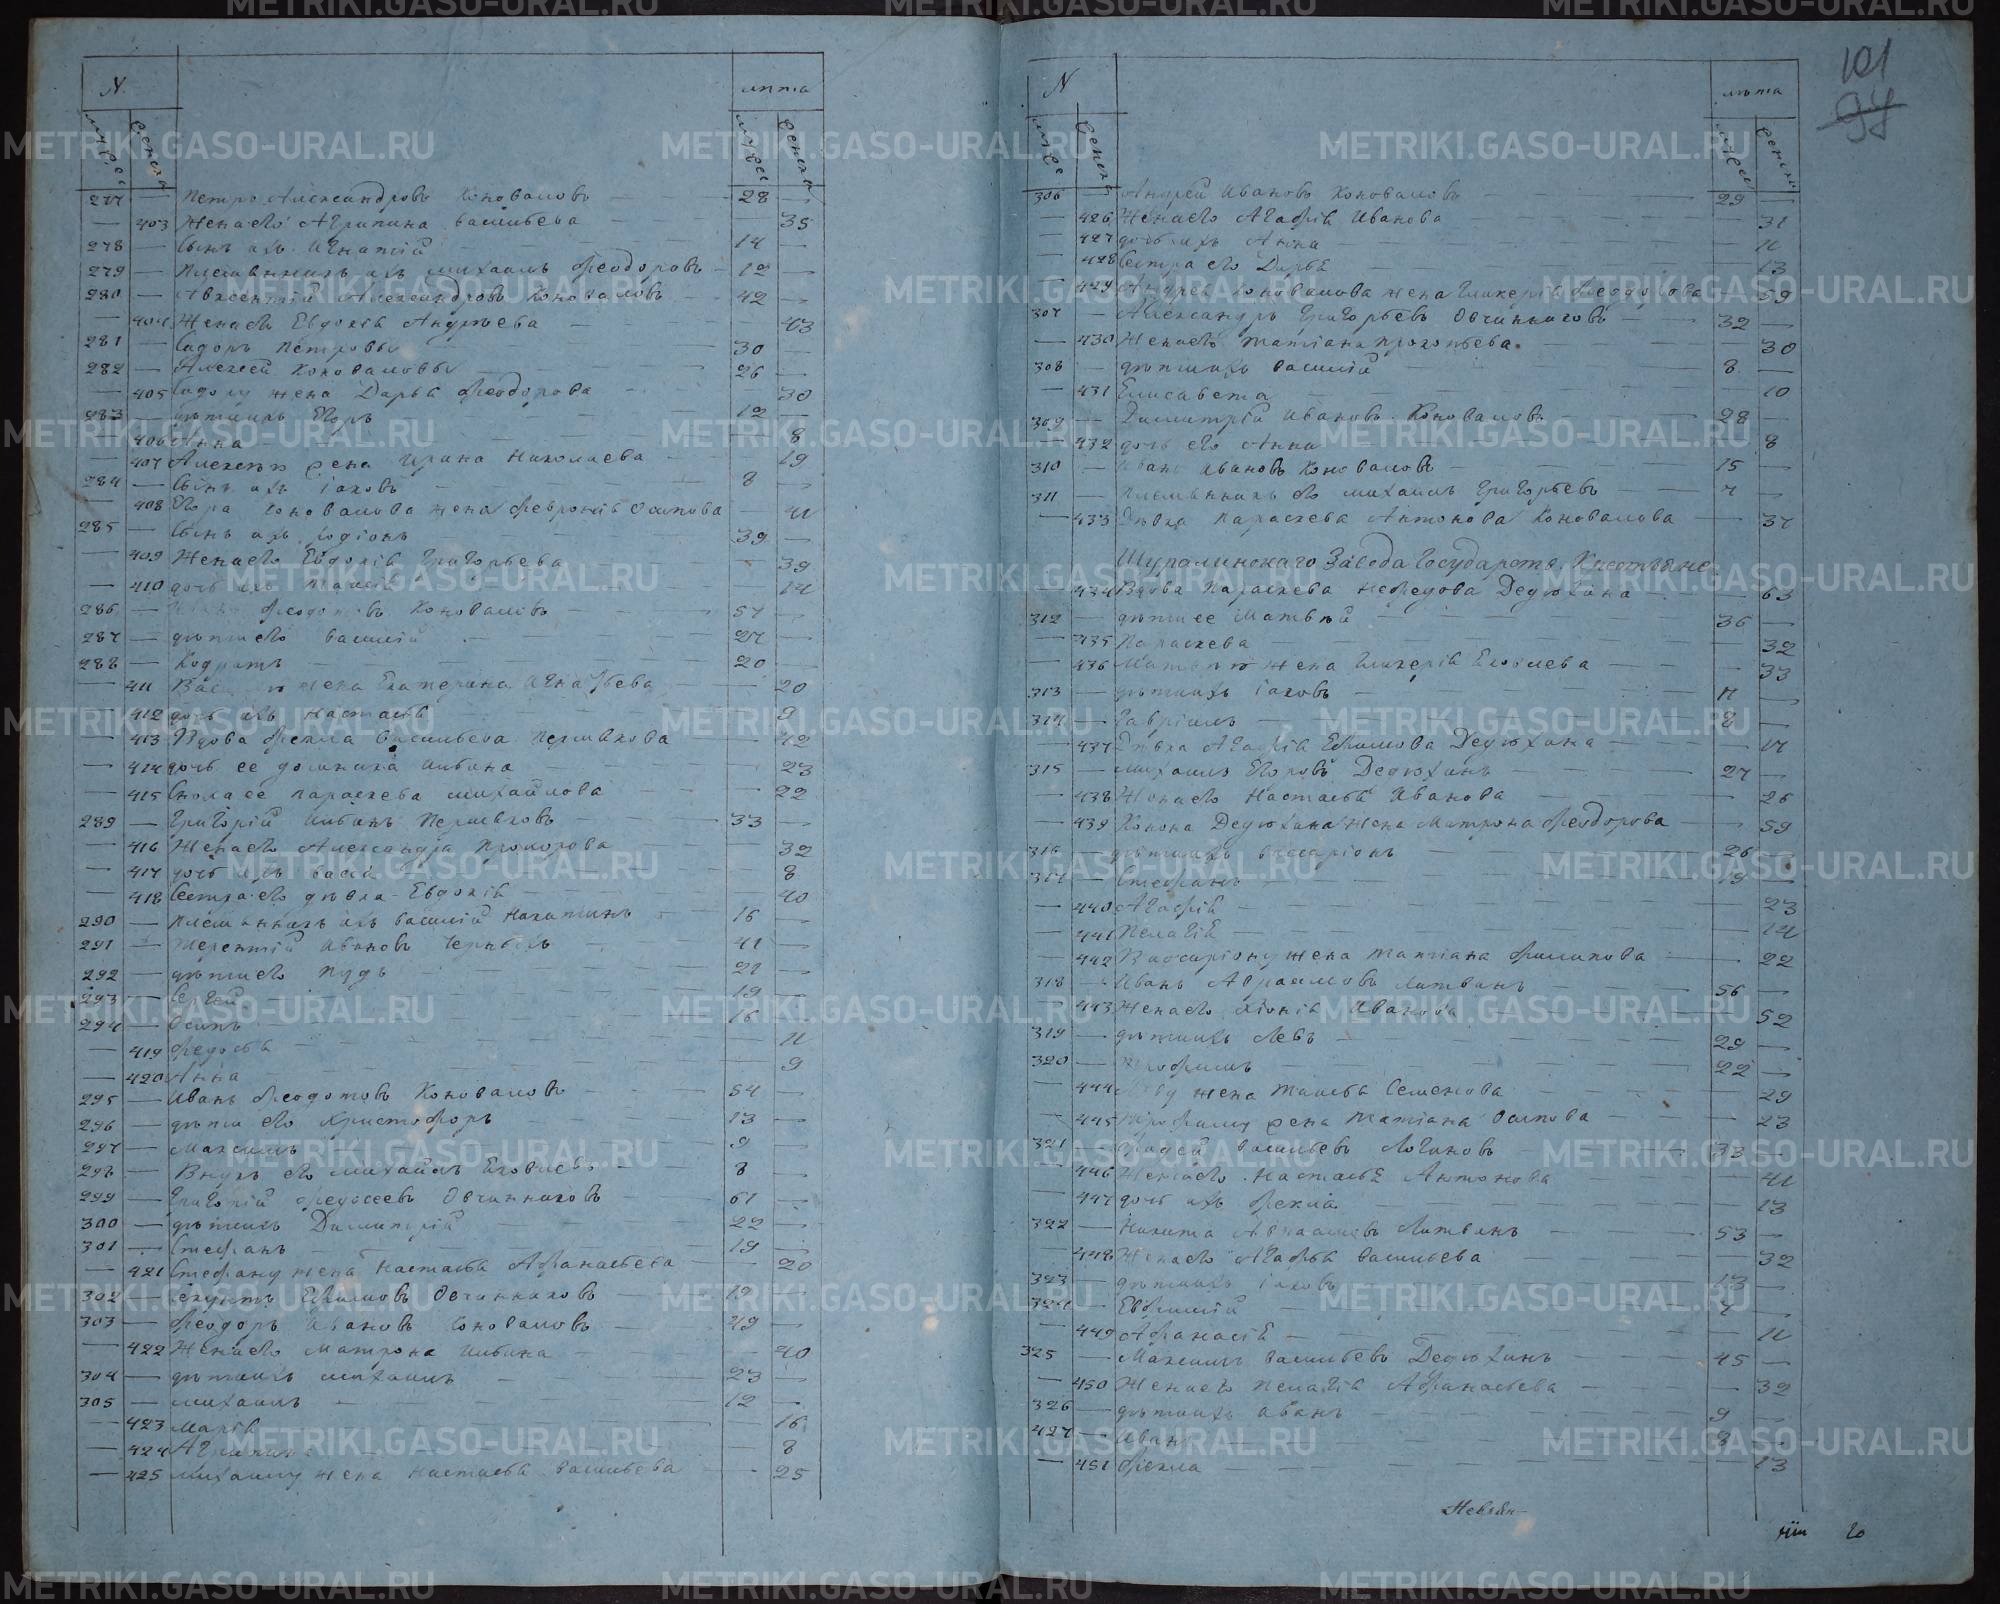 N. лѣта
мужес женска мужес женска
277 — Петръ Александровъ Коноваловъ — 28 —
— 403 Жена его Агрипина Васильева — 35
278 — Сынъ ихъ Игнатій — 14 —
279 — Племянникъ ихъ Михаилъ Феодоровъ — 12 —
280 — Авксентій Александровъ Коноваловъ — 42 —
— 404 Жена его Евдокія Андреева — 43
281 — Сидоръ Петровы — 30 —
282 — Алексей Коноваловы — 26 —
— 405 Сидору жена Дарья Феодорова — 30
283 — дѣти ихъ Егоръ — 12 —
— 406 Анна — 8
— 407 Алексѣю жена Ирина Николаева — 19
284 — Сынъ ихъ Іаковъ — 8 —
— 408 Егора Коновалова жена Февронія Осипова — 41
285 — Сынъ ихъ Родіонъ — 39 —
— 409 Жена его Евдокія Григорьева — 39
— 410 дочь ихъ Таисія — 14
286 — Феодотовъ Коноваловъ — 57 —
287 — дѣти его Василій — 27 —
288 — Кодратъ — 20 —
— 411 жена Екатерина Игнатьева — 20
— 412 дочь ихъ Настасья — 9
— 413 Вдова Фекла Васильева Першакова — 42
— 414 дочь ее Домника Ильина — 23
— 415 Сноха ее Параскева Михайлова — 22
289 — Григорій Ильинъ Першаковъ — 33 —
— 416 Жена его Александра Прохорова — 32
— 417 дочь ихъ — 8
— 418 Сестра его дѣвка Евдокія — 40
290 — Племянникъ ихъ Василій Никитинъ — 16 —
291 — Терентій Ивановъ Черныхъ — 41 —
292 — дѣти его Пудъ — 21 —
293 — Сергей — 19 —
294 — Осипъ — 16 —
— 419 Федосья — 11
— 420 Анна — 9
295 — Иванъ Феодотовъ Коноваловъ — 54 —
296 — дѣти его Христофоръ — 13 —
297 — Максимъ — 9 —
298 — Внукъ его Михаилъ Яковлевъ — 8 —
299 — Григорій Федосеевъ Овчинниковъ — 61 —
300 — дѣти ихъ Димитрій — 22 —
301 — Стефанъ — 19 —
— 421 Стефану жена Настасья Афанасьева — 20
302 — Ефимовъ Овчинниковъ — 19 —
303 — Феодоръ Ивановъ Коноваловъ — 49 —
— 422 Жена его Матрона Ильина — 40
304 — дѣти ихъ Михаилъ — 23 —
305 — Михаилъ — 12 —
— 423 Марія — 16
— 424 Агрипина — 8
— 425 Михаилу жена Настасья Васильева — 25
101
99
N лѣта
мужес женска мужес женска
306 — Андрей Ивановъ Коноваловъ — 29 —
— 426 Жена его Агафія Иванова — 31
— 427 дочь ихъ Анна — 11
— 428 Сестра его Дарья — 13
— 429 Андрея Коновалова жена Гликерія Феодорова — 59
307 — Александръ Григорьевъ Овчинниковъ — 32 —
— 430 Жена его Татіана Прокопьева — 30
308 — дѣти ихъ Василій — 8 —
— 431 Елисавета — 10
309 — Димитрій Ивановъ Коноваловъ — 28 —
— 432 дочь его Анна — 8
310 — Иванъ Ивановъ Коноваловъ — 15 —
311 — Племянникъ его Михаилъ Григорьевъ — 7 —
— 433 Дѣвка Параскева Антонова Коновалова — 37
Шуралинскаго Завода Государств. Крестьяне
— 434 Вдова Параскева Нефедова Дедюхина — 63
312 — дѣти ее Матвѣй — 36 —
— 435 Параскева — 32
— 436 Матвѣю жена Гликерія Яковлева — 33
313 — дѣти ихъ Іаковъ — 11 —
314 — Гавріилъ — 8 —
— 437 Дѣвка Агафія Ефимова Дедюхина — 17
315 — Михаилъ Егоровъ Дедюхинъ — 27 —
— 438 Жена его Настасья Иванова — 26
— 439 Конона Дедюхина жена Матрона Феодорова — 59
316 — дѣти ихъ Виссаріонъ — 26 —
317 — Стефанъ — 19 —
— 440 Агафія — 23
— 441 Пелагія — 14
— 442 Виссаріону жена Татіана Филипова — 22
318 — Иванъ Абрамовъ Литвинъ — 56 —
— 443 Жена его Хіонія Иванова — 52
319 — дѣти ихъ Левъ — 29 —
320 — Трофимъ — 22 —
— 444 Льву жена Таисья Семенова — 29
— 445 Трофиму жена Татіана Осипова — 23
321 — Васильевъ Логиновъ — 33 —
— 446 Жена его Настасья Антонова — 41
— 447 дочь ихъ Фекла — 13
322 — Никита Абрамовъ Литвинъ — 53 —
— 448 Жена его Агафья Васильева — 32
323 — дѣти ихъ Іаковъ — 13 —
324 — Евфимій — 7 —
— 449 Афанасія — 11
325 — Максимъ Васильевъ Дедюхинъ — 45 —
— 450 Жена его Пелагія Афанасьева — 32
326 — дѣти ихъ Иванъ — 9 —
427 — Иванъ — 8 —
— 451 Фекла — 13
Невьян-